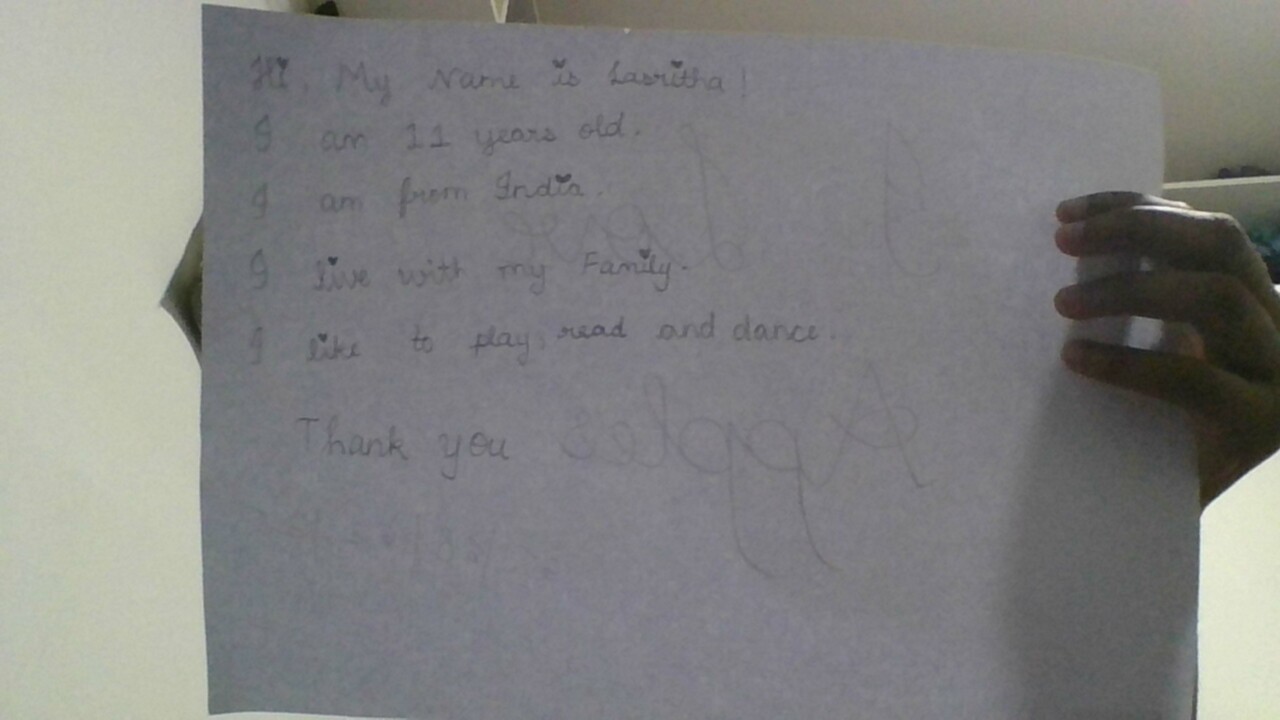 Hi, My Name is Lasritha!
I am 11 years old.
I am from India.
I live with my Family.
I like to play, read and dance.
Thank you
I Love
Apples